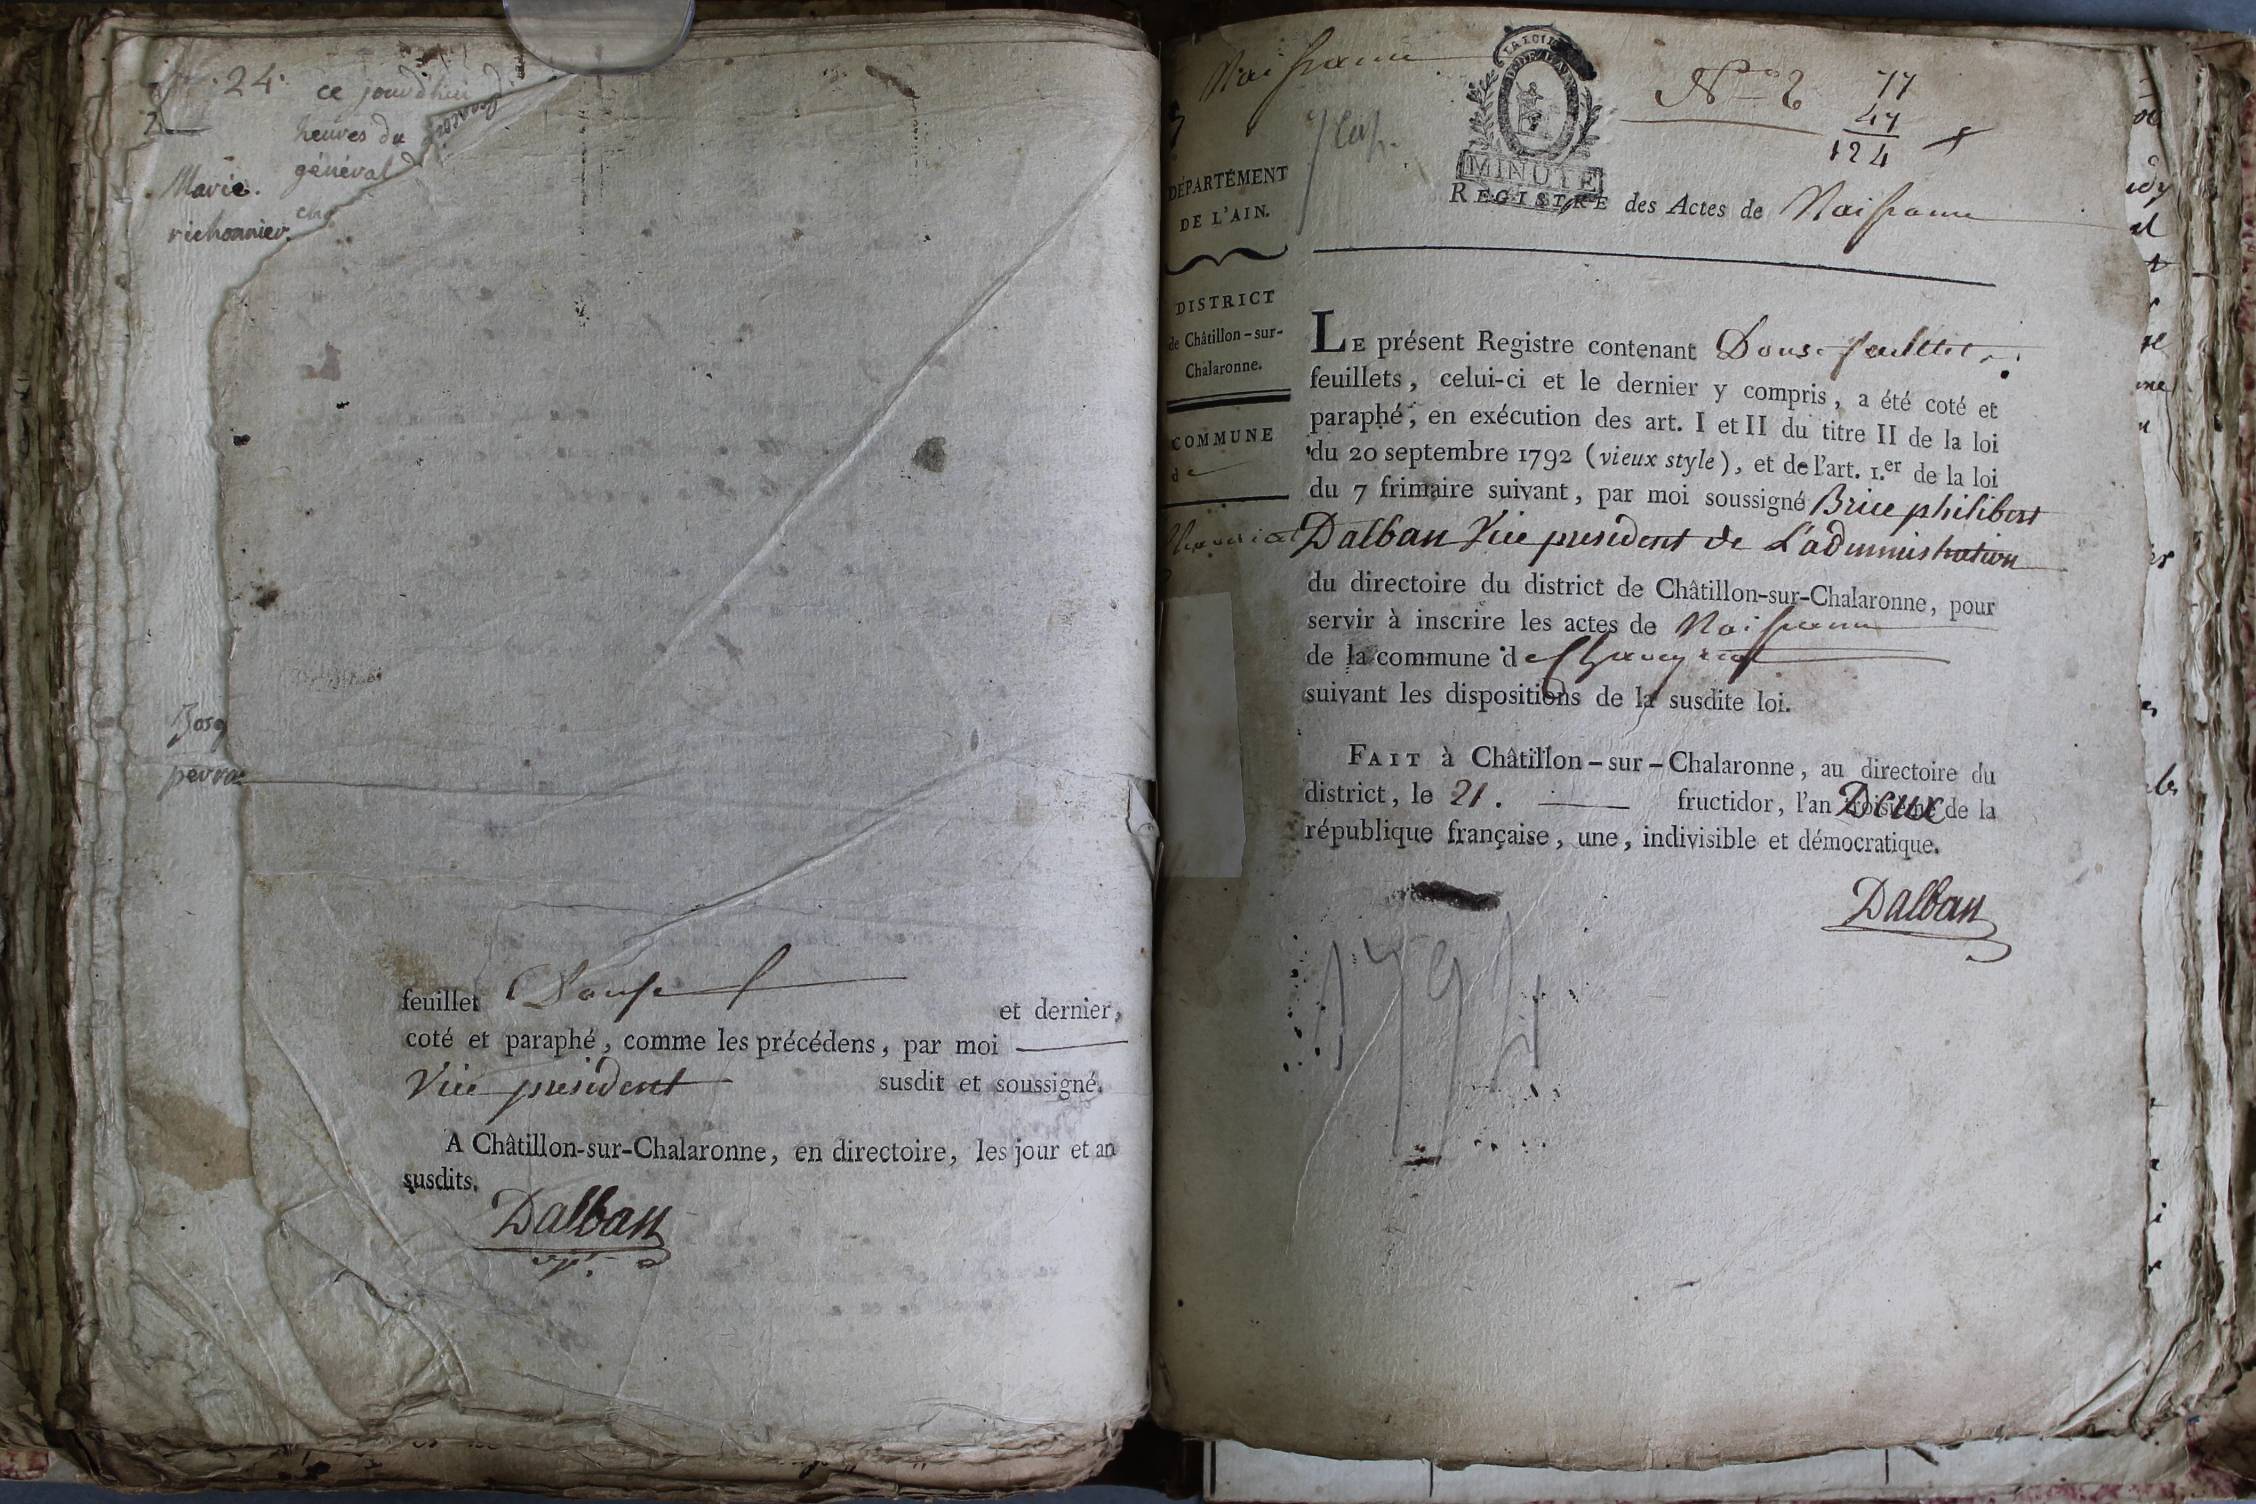 24.
ce jourd'hui
heures du
général
Marie.
richonnier.
feuillet Douse
et dernier,
coté et paraphé, comme les précédens, par moi
Vice president susdit et soussigné.
A Châtillon-sur-Chalaronne, en directoire, les jour et an
susdits.
Dalban
Naissance
N.o 2
77
47
124
DÉPARTÉMENT
DE L'AIN.
DISTRICT
de Châtillon-sur-
Chalaronne.
COMMUNE
de
LA LOI
MINUTE
REGISTRE des Actes de Naissance
LE présent Registre contenant Douse feuillets
feuillets, celui-ci et le dernier y compris, a été coté et
paraphé, en exécution des art. I et II du titre II de la loi
du 20 septembre 1792 (vieux style), et de l'art. 1.er de la loi
du 7 frimaire suivant, par moi soussigné Brice philibert
Dalban Vice president de L'administration
du directoire du district de Châtillon-sur-Chalaronne, pour
servir à inscrire les actes de Naissance
de la commune de Chaveyriat
suivant les dispositions de la susdite loi.
FAIT à Châtillon-sur-Chalaronne, au directoire du
district, le 21. fructidor, l'an Deux de la
république française, une, indivisible et démocratique.
Dalban
1794